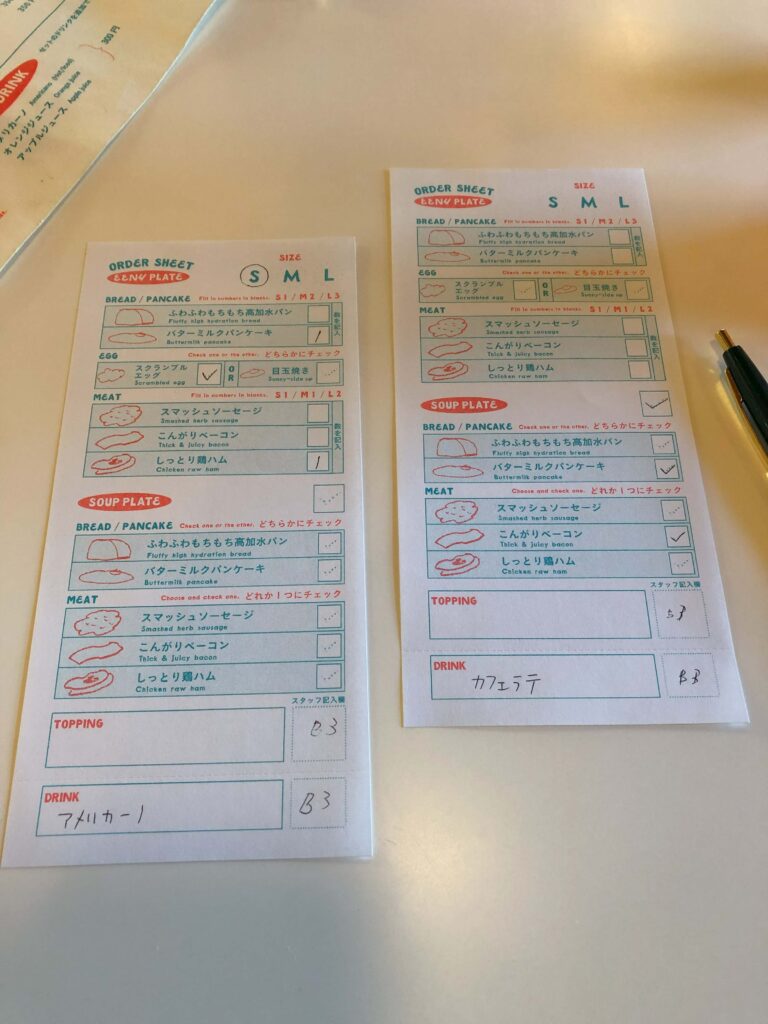 350円
セットのドリンクを追加で
300円
DRINK
アメリカーノ Americano (Hot/Iced)
オレンジジュース Orange juice
アップルジュース Apple juice
ORDER SHEET
EENY PLATE
SIZE
S M L
BREAD / PANCAKE Fill in numbers in blanks. S1 / M2 / L3
ふわふわもちもち高加水パン
Fluffy high hydration bread
バターミルクパンケーキ 1
Buttermilk pancake
数を記入
EGG Check one or the other. どちらかにチェック
スクランブル
エッグ
Scrambled egg
OR
目玉焼き
Sunny-side up
MEAT Fill in numbers in blanks. S1 / M1 / L2
スマッシュソーセージ
Smashed herb sausage
こんがりベーコン
Thick & juicy bacon
しっとり鶏ハム 1
Chicken raw ham
数を記入
SOUP PLATE
BREAD / PANCAKE Check one or the other. どちらかにチェック
ふわふわもちもち高加水パン
Fluffy high hydration bread
バターミルクパンケーキ
Buttermilk pancake
MEAT Choose and check one. どれか1つにチェック
スマッシュソーセージ
Smashed herb sausage
こんがりベーコン
Thick & juicy bacon
しっとり鶏ハム
Chicken raw ham
スタッフ記入欄
TOPPING B3
DRINK
アメリカーノ B3
ORDER SHEET
EENY PLATE
SIZE
S M L
BREAD / PANCAKE Fill in numbers in blanks. S1 / M2 / L3
ふわふわもちもち高加水パン
Fluffy high hydration bread
バターミルクパンケーキ
Buttermilk pancake
数を記入
EGG Check one or the other. どちらかにチェック
スクランブル
エッグ
Scrambled egg
OR
目玉焼き
Sunny-side up
MEAT Fill in numbers in blanks. S1 / M1 / L2
スマッシュソーセージ
Smashed herb sausage
こんがりベーコン
Thick & juicy bacon
しっとり鶏ハム
Chicken raw ham
数を記入
SOUP PLATE
BREAD / PANCAKE Check one or the other. どちらかにチェック
ふわふわもちもち高加水パン
Fluffy high hydration bread
バターミルクパンケーキ
Buttermilk pancake
MEAT Choose and check one. どれか1つにチェック
スマッシュソーセージ
Smashed herb sausage
こんがりベーコン
Thick & juicy bacon
しっとり鶏ハム
Chicken raw ham
スタッフ記入欄
TOPPING B3
DRINK
カフェラテ B3